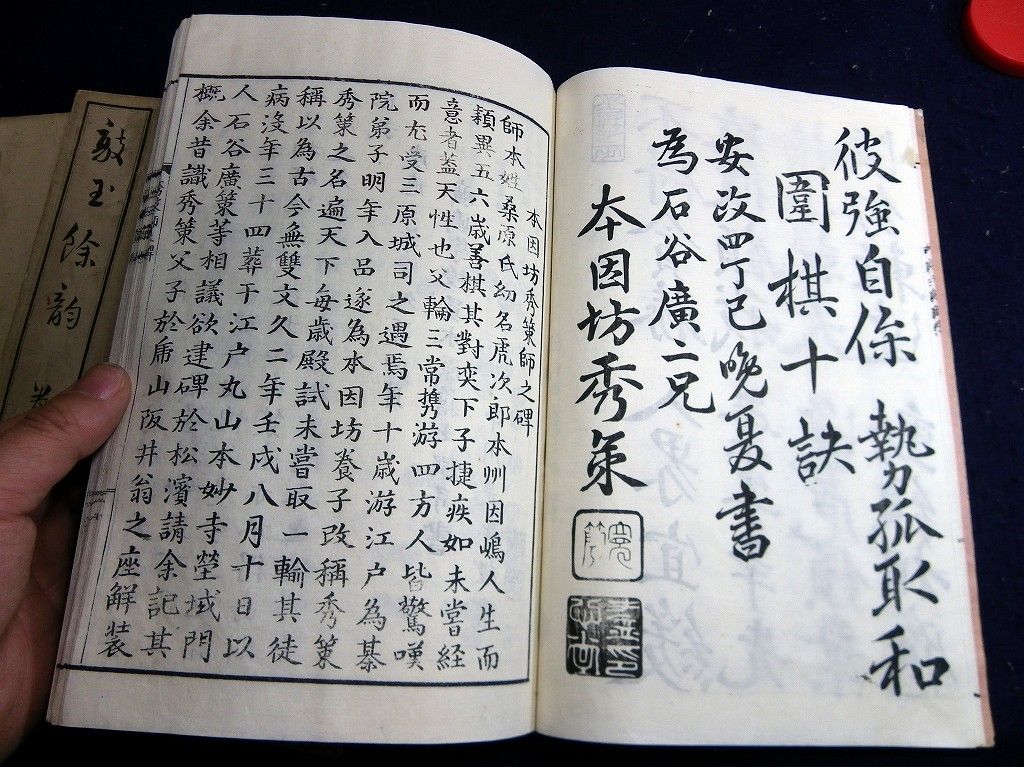 彼強自保 勢孤取和
圍棋十訣
安政四丁巳晩夏書
為石谷廣二兄
本因坊秀策
本因坊秀策師之碑
師本姓桑原氏幼名虎次郎本州因嶋人生而
穎異五六歳善棋其對奕下子捷疾如未嘗経
意者蓋天性也父輪三常携游四方人皆驚嘆
而尤受三原城司之遇焉年十歳游江户為棊
院弟子明年入品遂為本因坊養子改稱秀策
秀策之名遍天下毎歳殿試未嘗取一輸其徒
稱以為古今無雙文久二年壬戌八月十日以
病没年三十四葬于江户丸山本妙寺塋域門
人石谷廣策等相議欲建碑於松濱請余記其
概余昔識秀策父子於山阪井翁之座解装
敲玉餘韵 巻